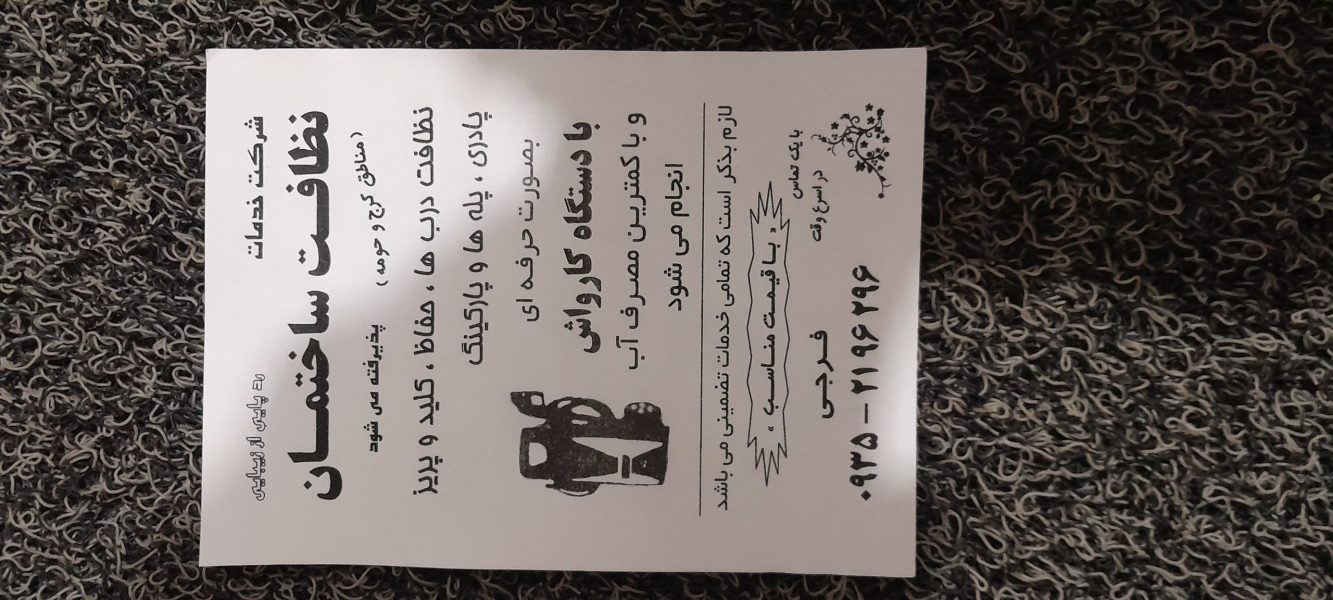 شرکت خدمات
رد پایی از زیبایی
نظافت ساختمان
(مناطق کرج و حومه)
پذیرفته می شود
نظافت درب ها ، حفاظ ، کلید و پریز
پادری ، پله ها و پارکینگ
بصورت حرفه ای
با دستگاه کارواش
و با کمترین مصرف آب
انجام می شود
لازم بذکر است که تمامی خدمات تضمینی می باشد
« با قیمت مناسب »
با یک تماس
در اسرع وقت
فرجی
۰۹۳۵ – ۲۱۹۶۲۹۶